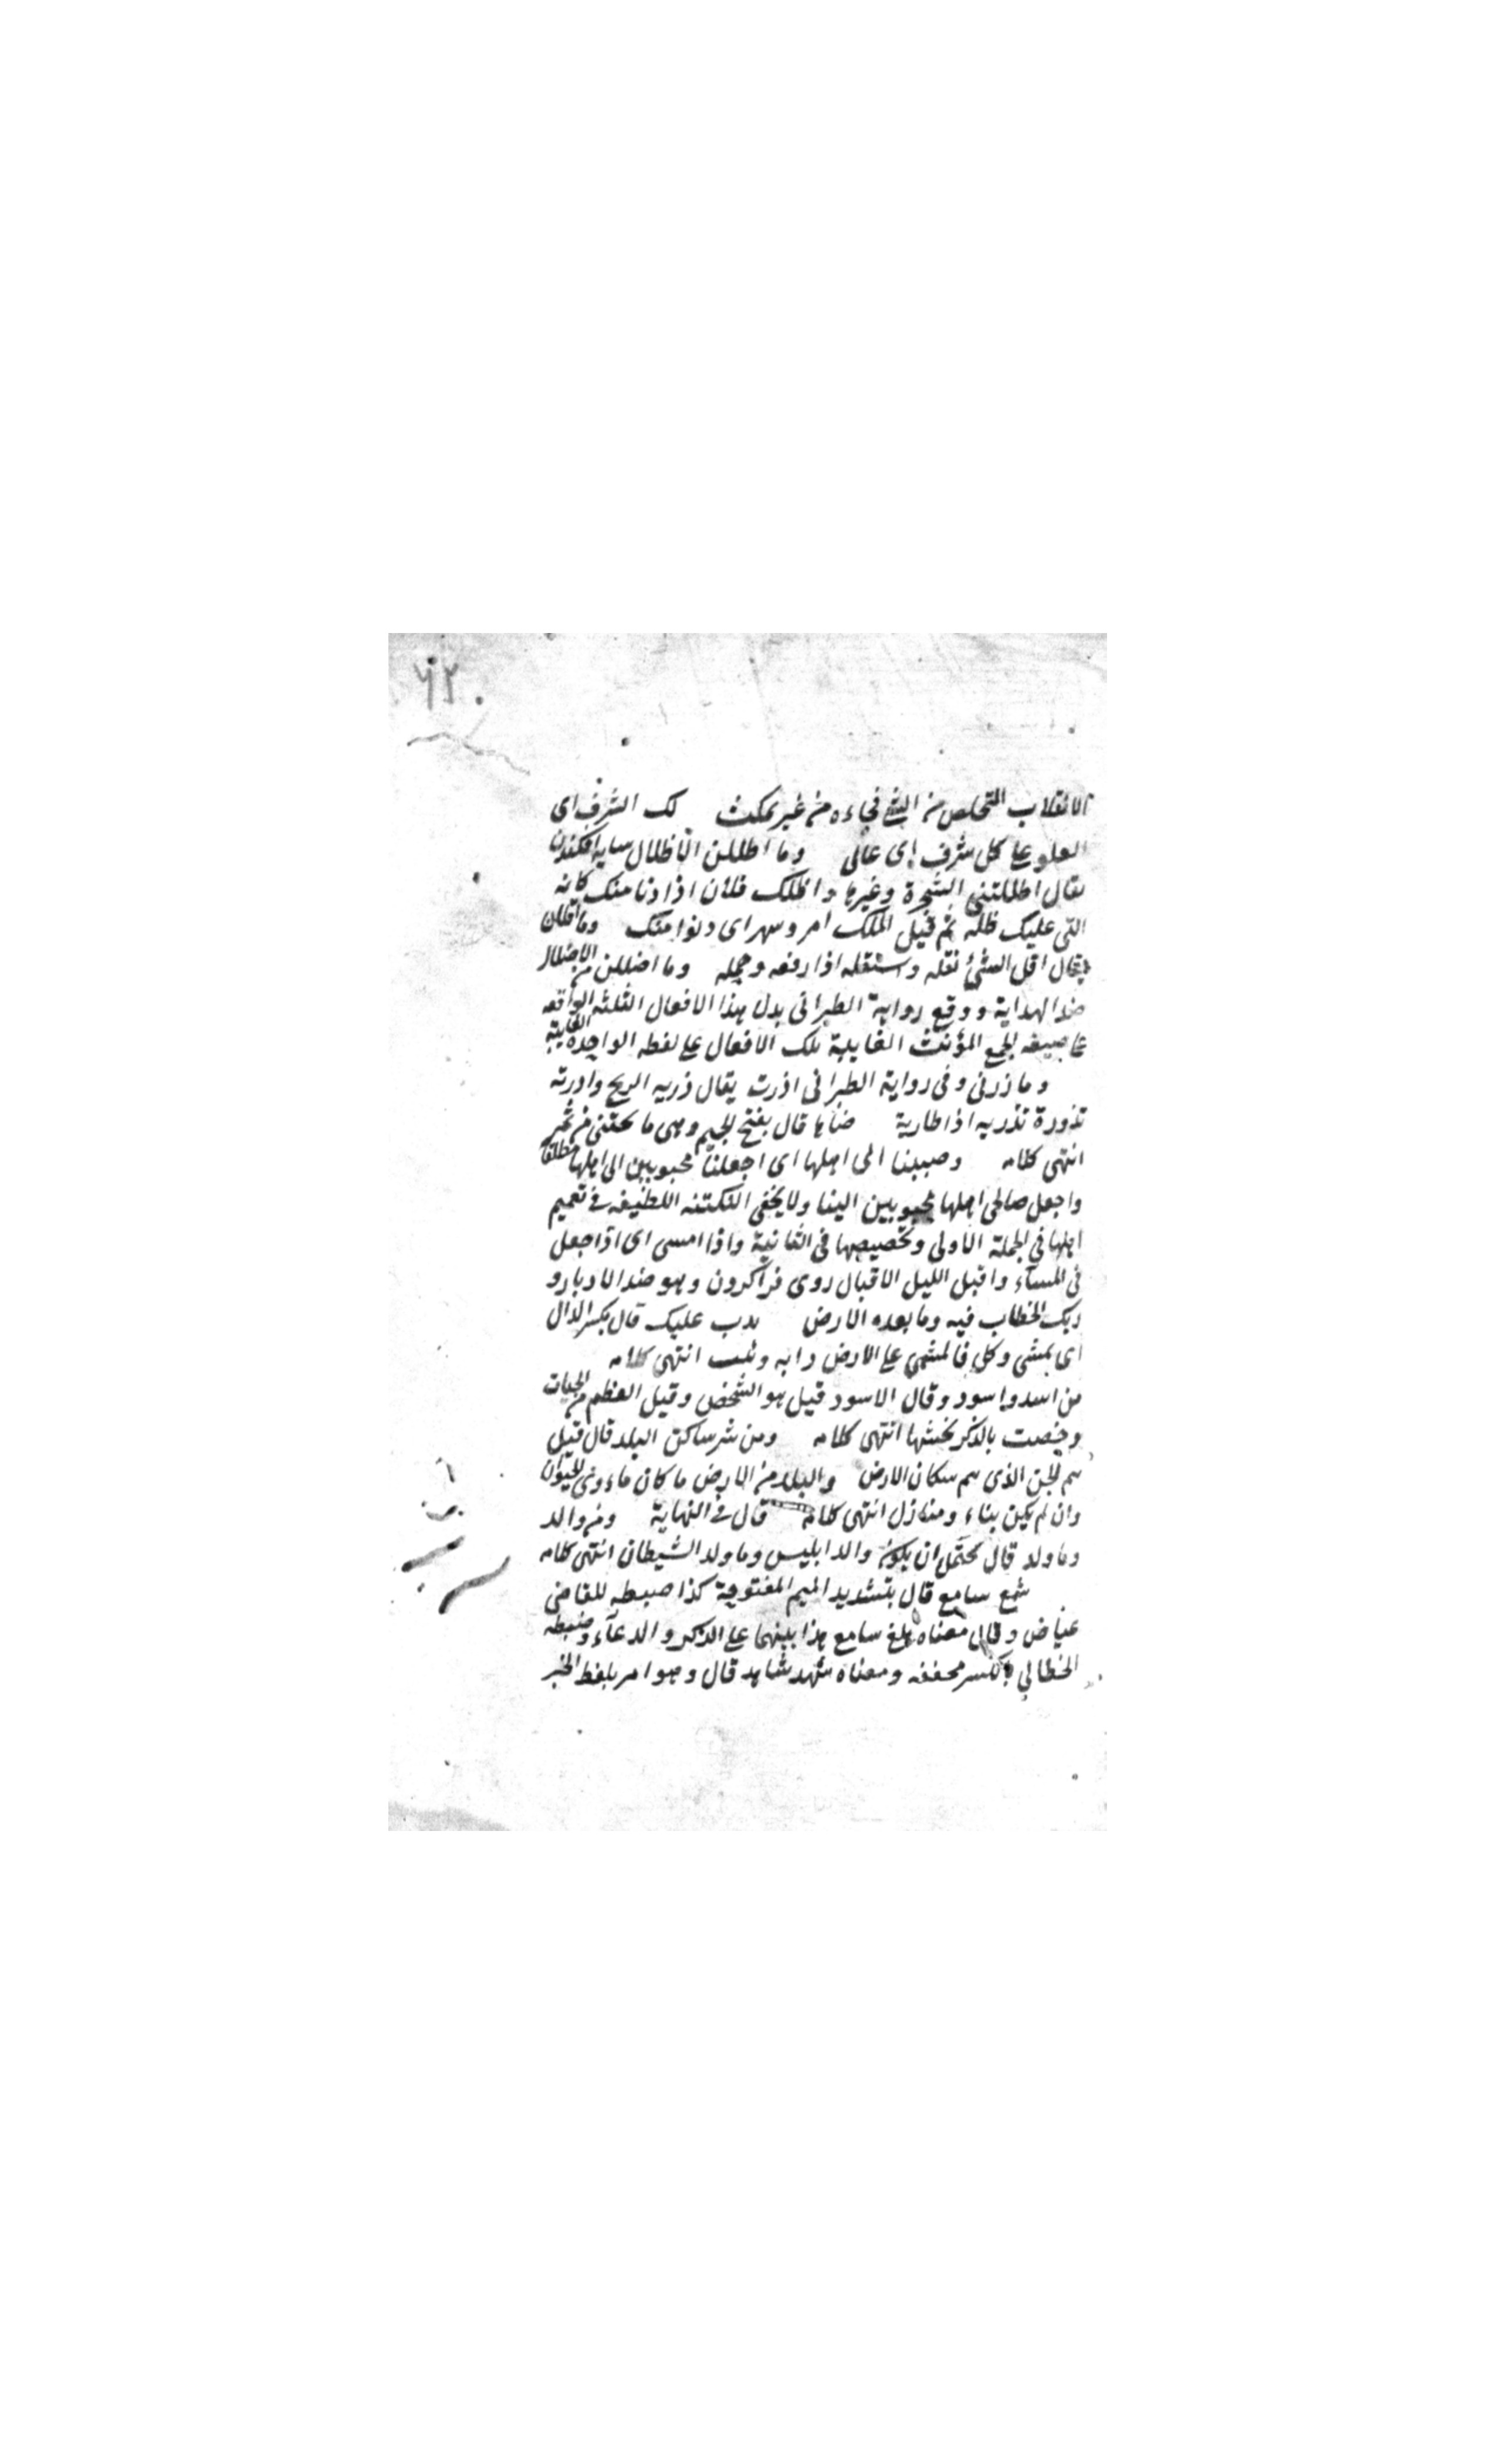 ٦٢٠
الانقلاب التخلص من الشئ فجاءه من غير تمكث لك الشرف اى
العلو على كل شرف اى عالى وما اظللن الاظلال سايه افكندن
يقال اظللتنى الشجرة وغيرها واظلك فلان اذا دنا منك كانه
القى عليك ظله ثم قيل اظلك امر وسهر اى دنوا منك وما اقللن
يقال اقل الشئ نقله واستقله اذا رفعه وحمله وما اضللن من الاضلال
ضد الهداية ووقع رواية الطبرانى بدل هذا الافعال الثلثه الواقعه
على صيغه الجمع المؤنث الغايبة تلك الافعال على لفظه الواحدة الغايبة
وما ذرنى وفى رواية الطبرانى اذرت يقال ذريه الريح وادرته
تذورة تذريه اذا طارية ضاها قال بفتح الجيم وهى ما يجتنى من ثمر
انتهى كلامه وحببنا الى اهلها اى اجعلنا محبوبين الى اهلها مطلقا
واجعل صالحى اهلها محبوبين الينا ولا يخفى النكتنه اللطيفه فى تعميم
اهلها فى الجملة الاولى وتخصيصها فى الثانية واذا امسى اى اذا جعل
فى المساء واقبل الليل الاقبال روى فراكردن وهو ضد الادبار و
ربك الخطاب فيه وما بعده الارض يدب عليك قال بكسر الدال
اى يمشى وكل فالمشى على الارض دابه ودبيب انتهى كلامه
من اسد واسود وقال الاسود قيل هو الشخص وقيل العظيم من الحيات
وخصت بالذكر لخبثها انتهى كلامه ومن شر ساكن البلد قال قيل
هم الجن الذى هم سكان الارض والبلد من الارض ما كان ماءوى الحيوان
وان لم يكن بناء ومنازل انتهى كلامه قال فى النهاية ومن والد
وما ولد قال يحتمل ان يكون والد ابليس وما ولد الشيطان انتهى كلامه
سمع سامع قال بتشديد الميم المفتوحة كذا ضبطه للقاضى
عياض وقال معناه بلغ سامع هذا بينهما على الذكر والدعآء وضبطه
الخطابي بالكسر مخففه ومعناه شهد شاهد قال وهو امر بلفظ الخبر